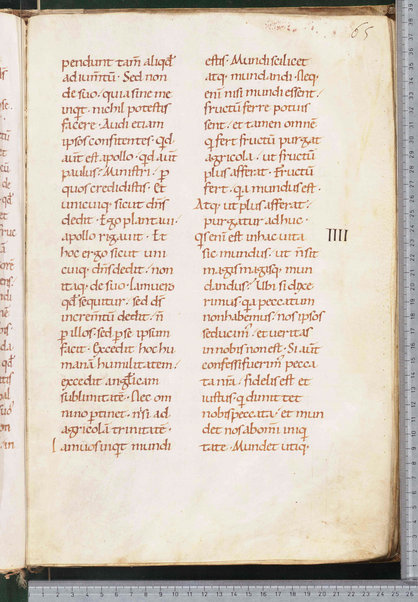 65
pendunt tam̄ aliqđ
adium̄tū · Sed non
de suo · quia sine me
inqt · nichil potestis
facere · Audi etiam
ipsos confitentes · Qđ
aūt est apollo · qđ aūt
paulus · Ministri · ꝑ
quos credidistis · Et
unicuiq; sicut dn̄s
dedit · Ego plantavi ·
apollo rigavit · Et
hoc ergo sicut uni
cuiq; dn̄s dedit · non
itaq; de suo · Iam vero
qđ sequitur · sed dš
increm̄tū dedit · n̄
ꝑ illos · sed ꝑ se ipsum
facit · Excedit hoc hu
manā humilitatem ·
excedit angłicam
sublimitatē · Nec om
nino ꝑtinet · nisi ad
agricolā trinitatē ·
Iam vos inqt mundi
estis · Mundi scilicet
atq; mundandi · Neq;
eni nisi mundi essent ·
fructū ferre potuis
sent · et tamen omnē
q fert fructū purgat
agricola · ut fructū
plus afferat · Fructū
fert · qa mundus est ·
Atq; ut plus afferat ·
purgatur adhuc ·
Qs eni est in hac vita
IIII
sic mundus · ut n̄ sit
magis magisq; mun
dandus · Ubi si dixe
rimus · qa peccatum
non habemus · nos ipsos
seducim̄ · et veritas
in nobis non est · Si aūt
confessi fuerim̄ pecca
ta nr̄a · fidelis est et
iustus · q dimittet
nobis peccata · et mun
det nos ab om̄i iniq
tate · Mundet utiq;